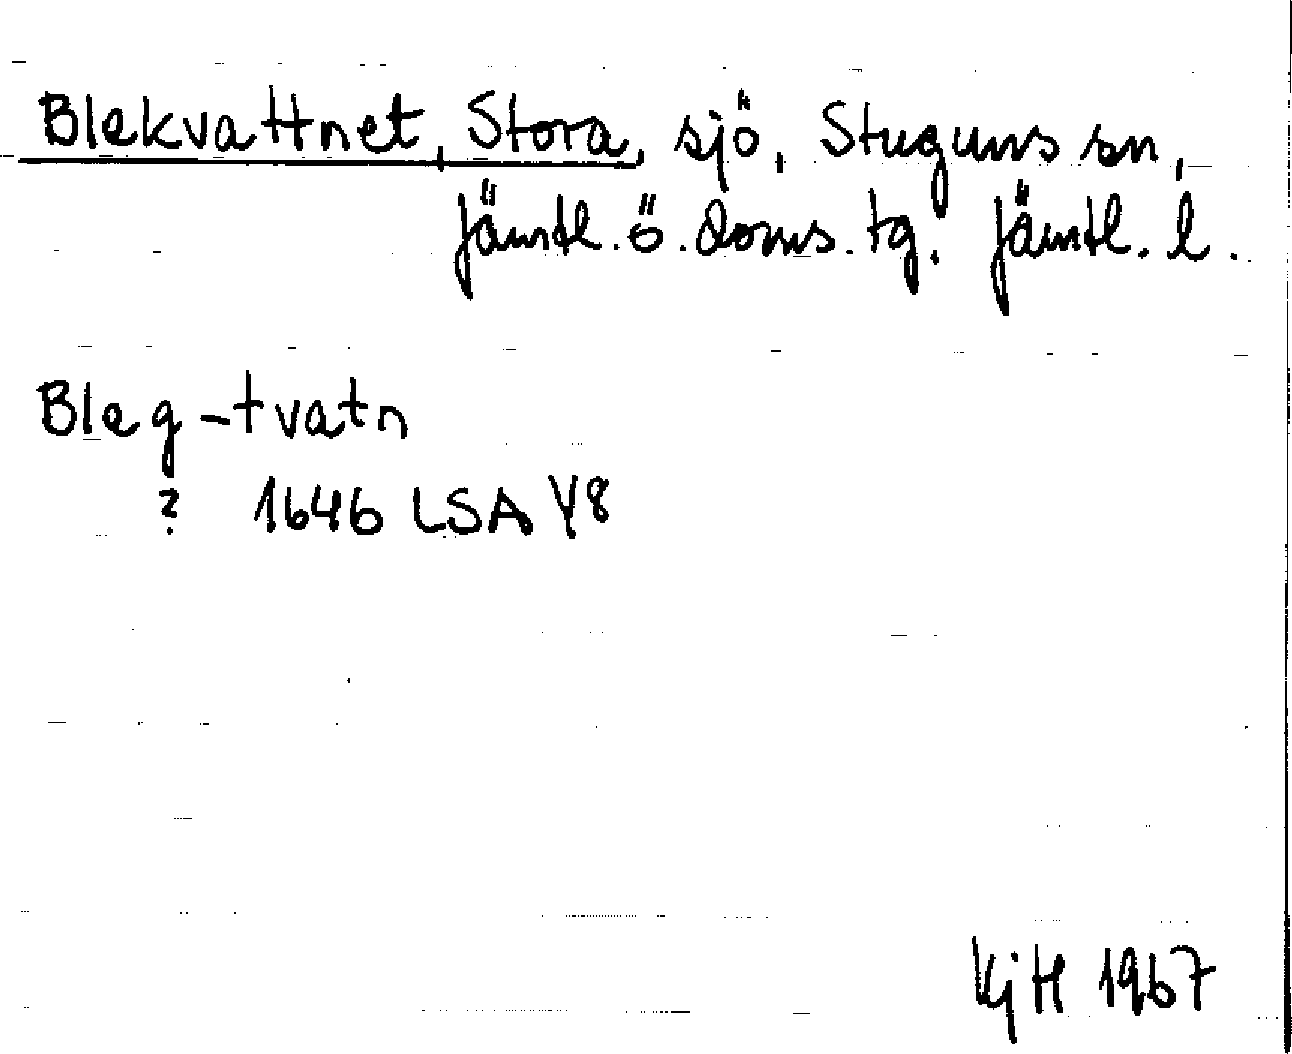 Blekvattnet, Stora, sjö, Stuguns sn,
Jämtl. ö. doms. tg. Jämtl. l.
Bleg-tvatn
? 1646 LSA Y8
KjH 1967